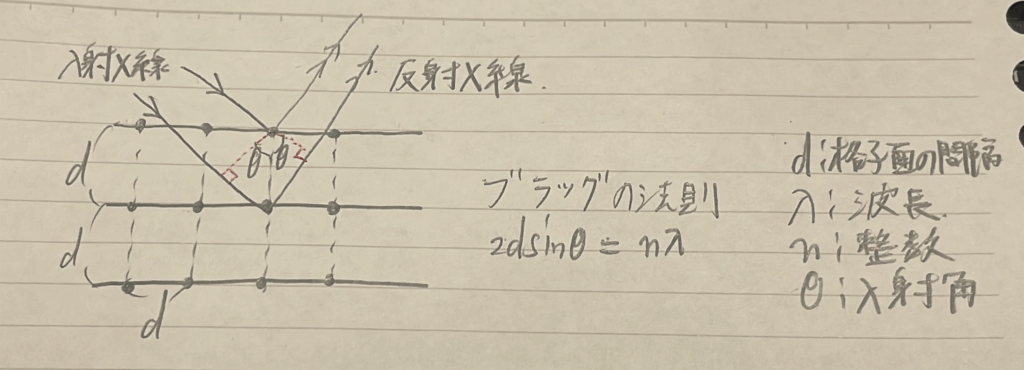 入射X線
反射X線.
θ θ
d
d
d
ブラッグの法則
2dsinθ = nλ
d;格子面の間隔
λ;波長.
n;整数
θ;入射角